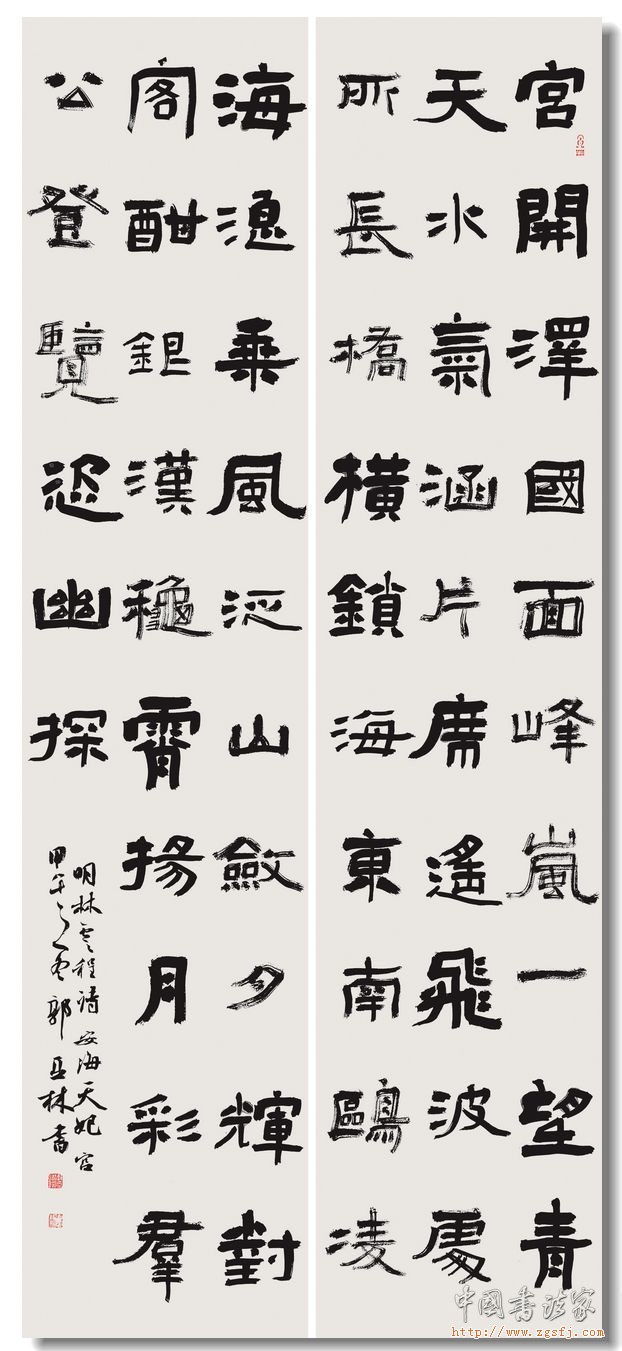 宮開澤國面峰嵐一望青
天水氣涵片席遙飛波處
所長橋橫鎖海東南鷗凌
海乘風泛山斂夕輝對
閣酣銀漢穐霄揚月彩羣
公登覽恣幽探
明林雲程詩安海天妃宮
甲午之冬郭亞林書
中國書法家
http://www.zgsfj.com